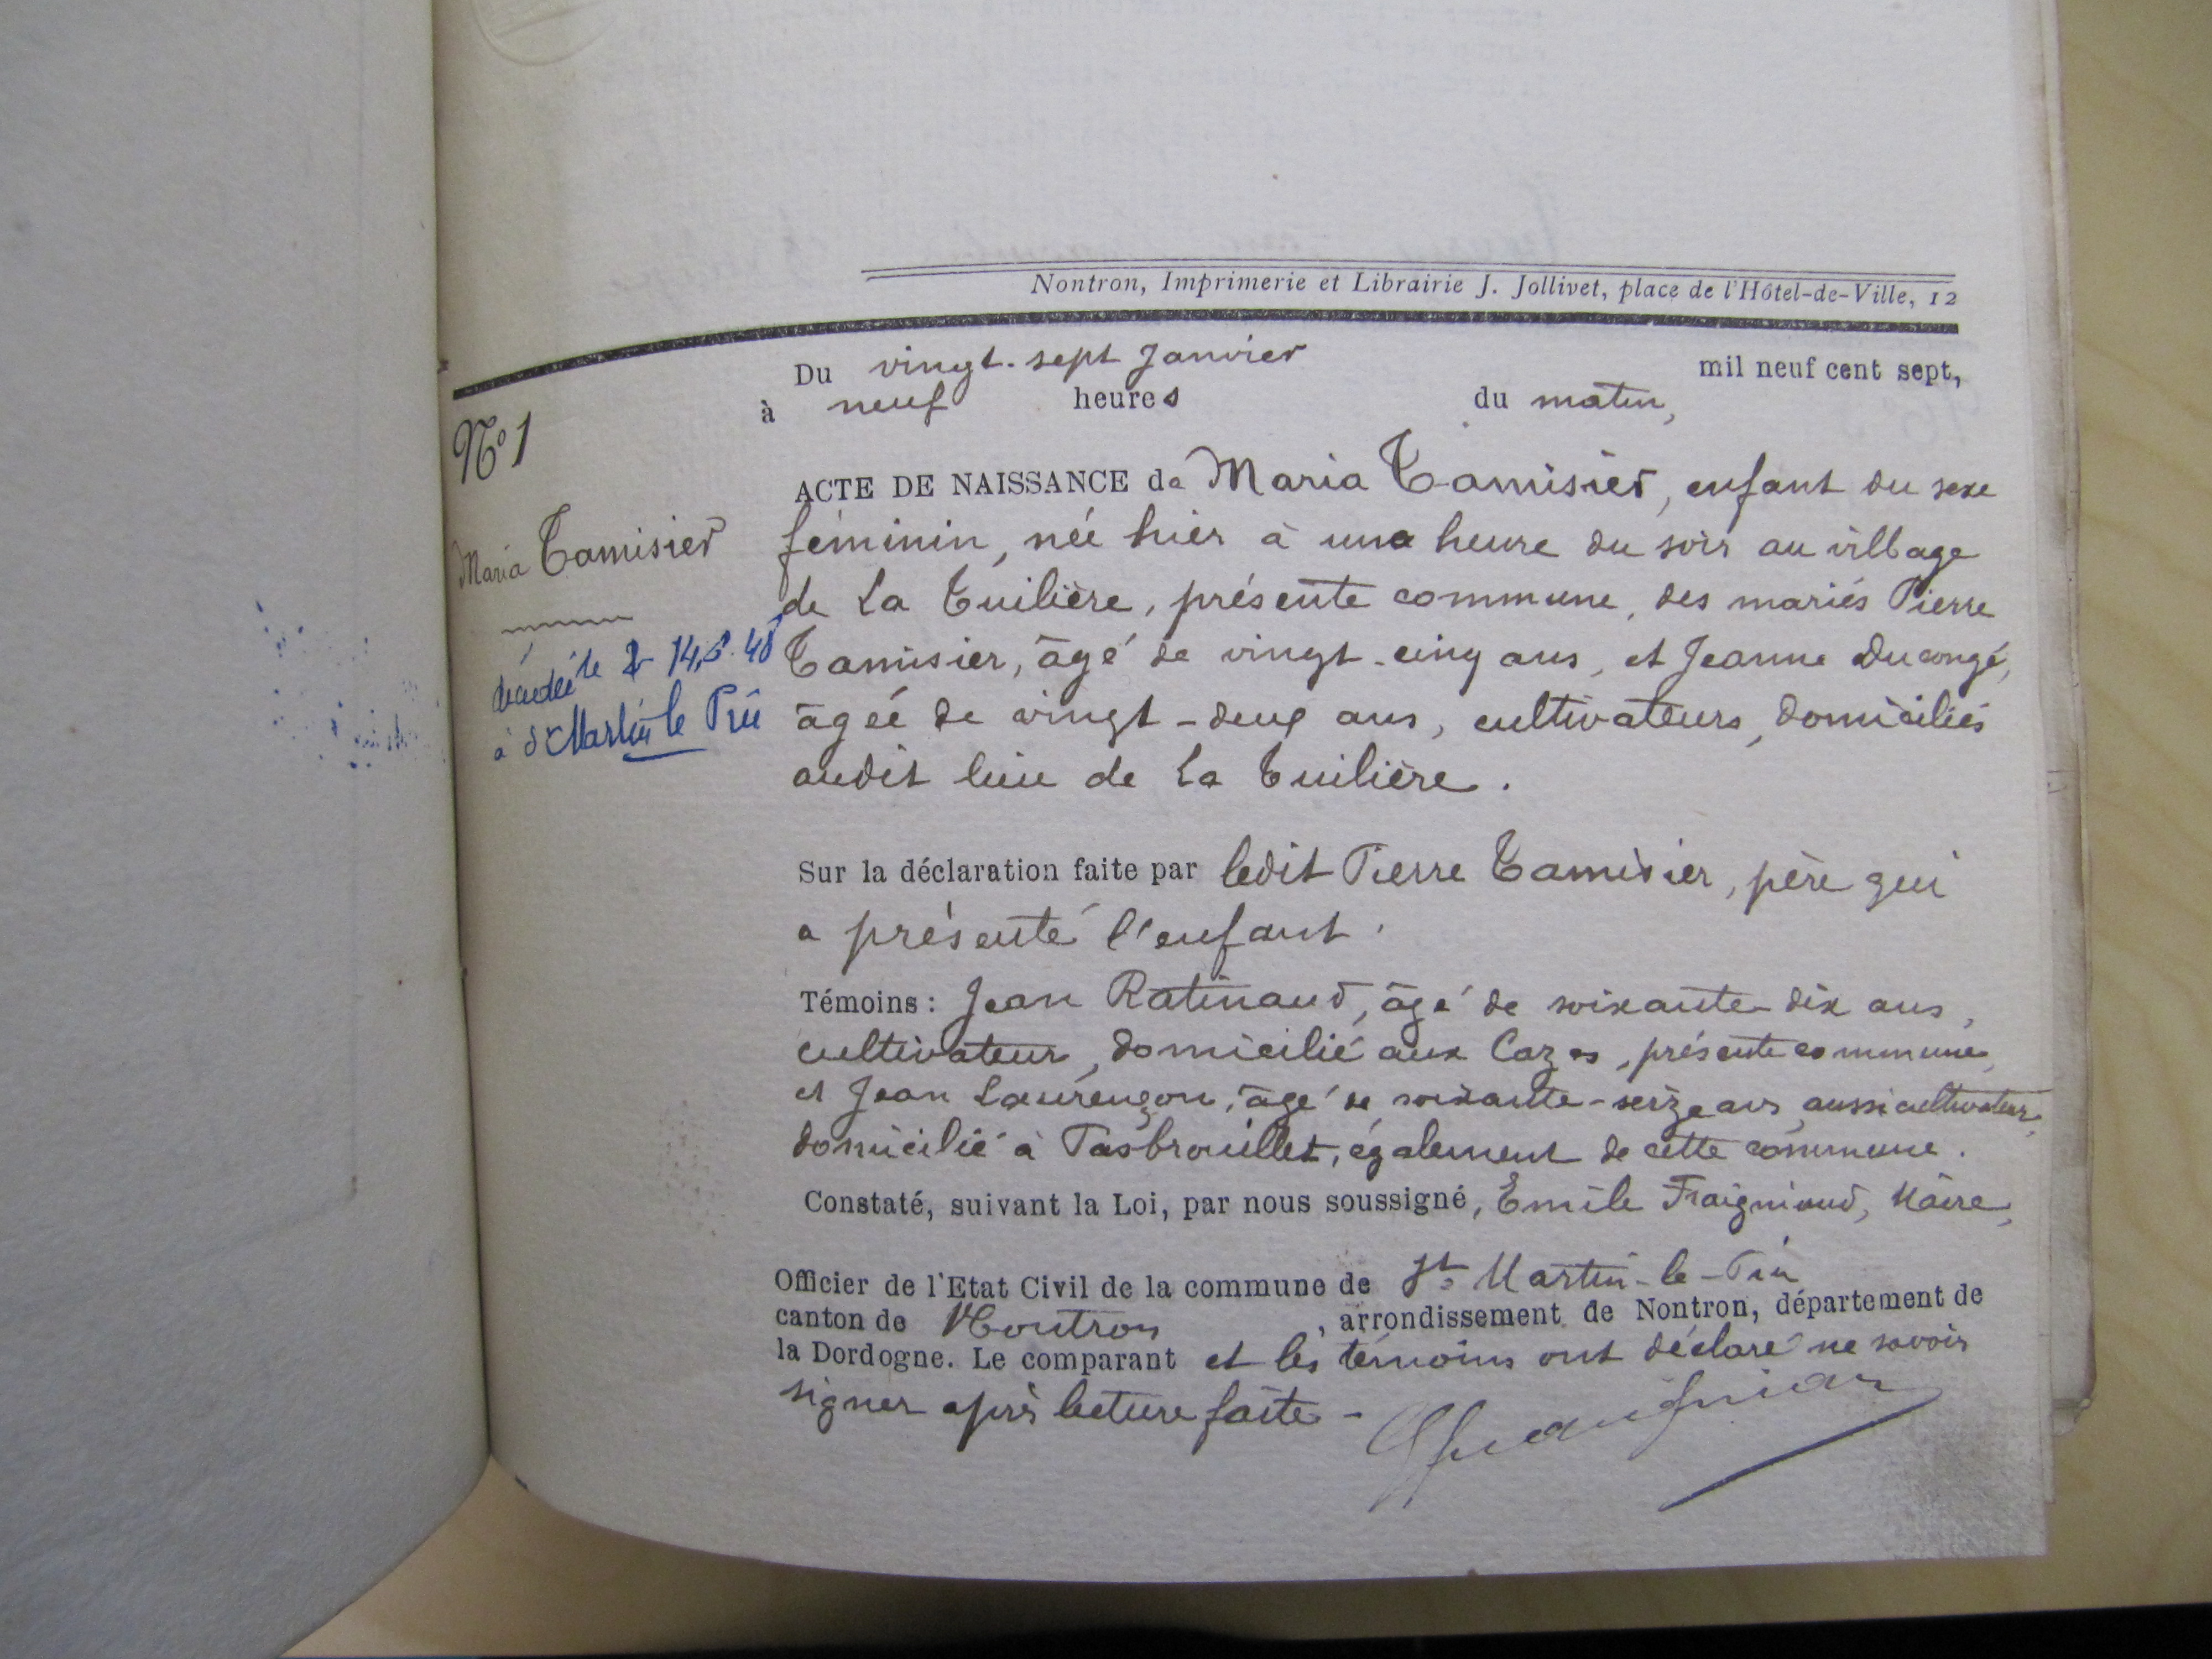 Nontron, Imprimerie et Librairie J. Jollivet, place de l'Hôtel-de-Ville, 12
Du vingt-sept Janvier mil neuf cent sept,
à neuf heures du matin,
N° 1
Maria Tamisier
décédée le 14.8.48
à St Martin le Pin
ACTE DE NAISSANCE de Maria Tamisier, enfant du sexe
féminin, née hier à une heure du soir au village
de La Tuilière, présente commune, des mariés Pierre
Tamisier, âgé de vingt-cinq ans, et Jeanne Ducongé,
âgée de vingt-deux ans, cultivateurs, domiciliés
audit lieu de La Tuilière.
Sur la déclaration faite par ledit Pierre Tamisier, père qui
a présenté l'enfant.
Témoins : Jean Ratinaud, âgé de soixante-dix ans,
cultivateur, domicilié aux Cazes, présente commune,
et Jean Laurençon, âgé de soixante-seize ans, aussi cultivateur,
domicilié à Pasbrouillet, également de cette commune.
Constaté, suivant la Loi, par nous soussigné, Emile Fraigniaud, Maire,
Officier de l'Etat Civil de la commune de St Martin-le-Pin
canton de Nontron, arrondissement de Nontron, département de
la Dordogne. Le comparant et les témoins ont déclaré ne savoir
signer après lecture faite -